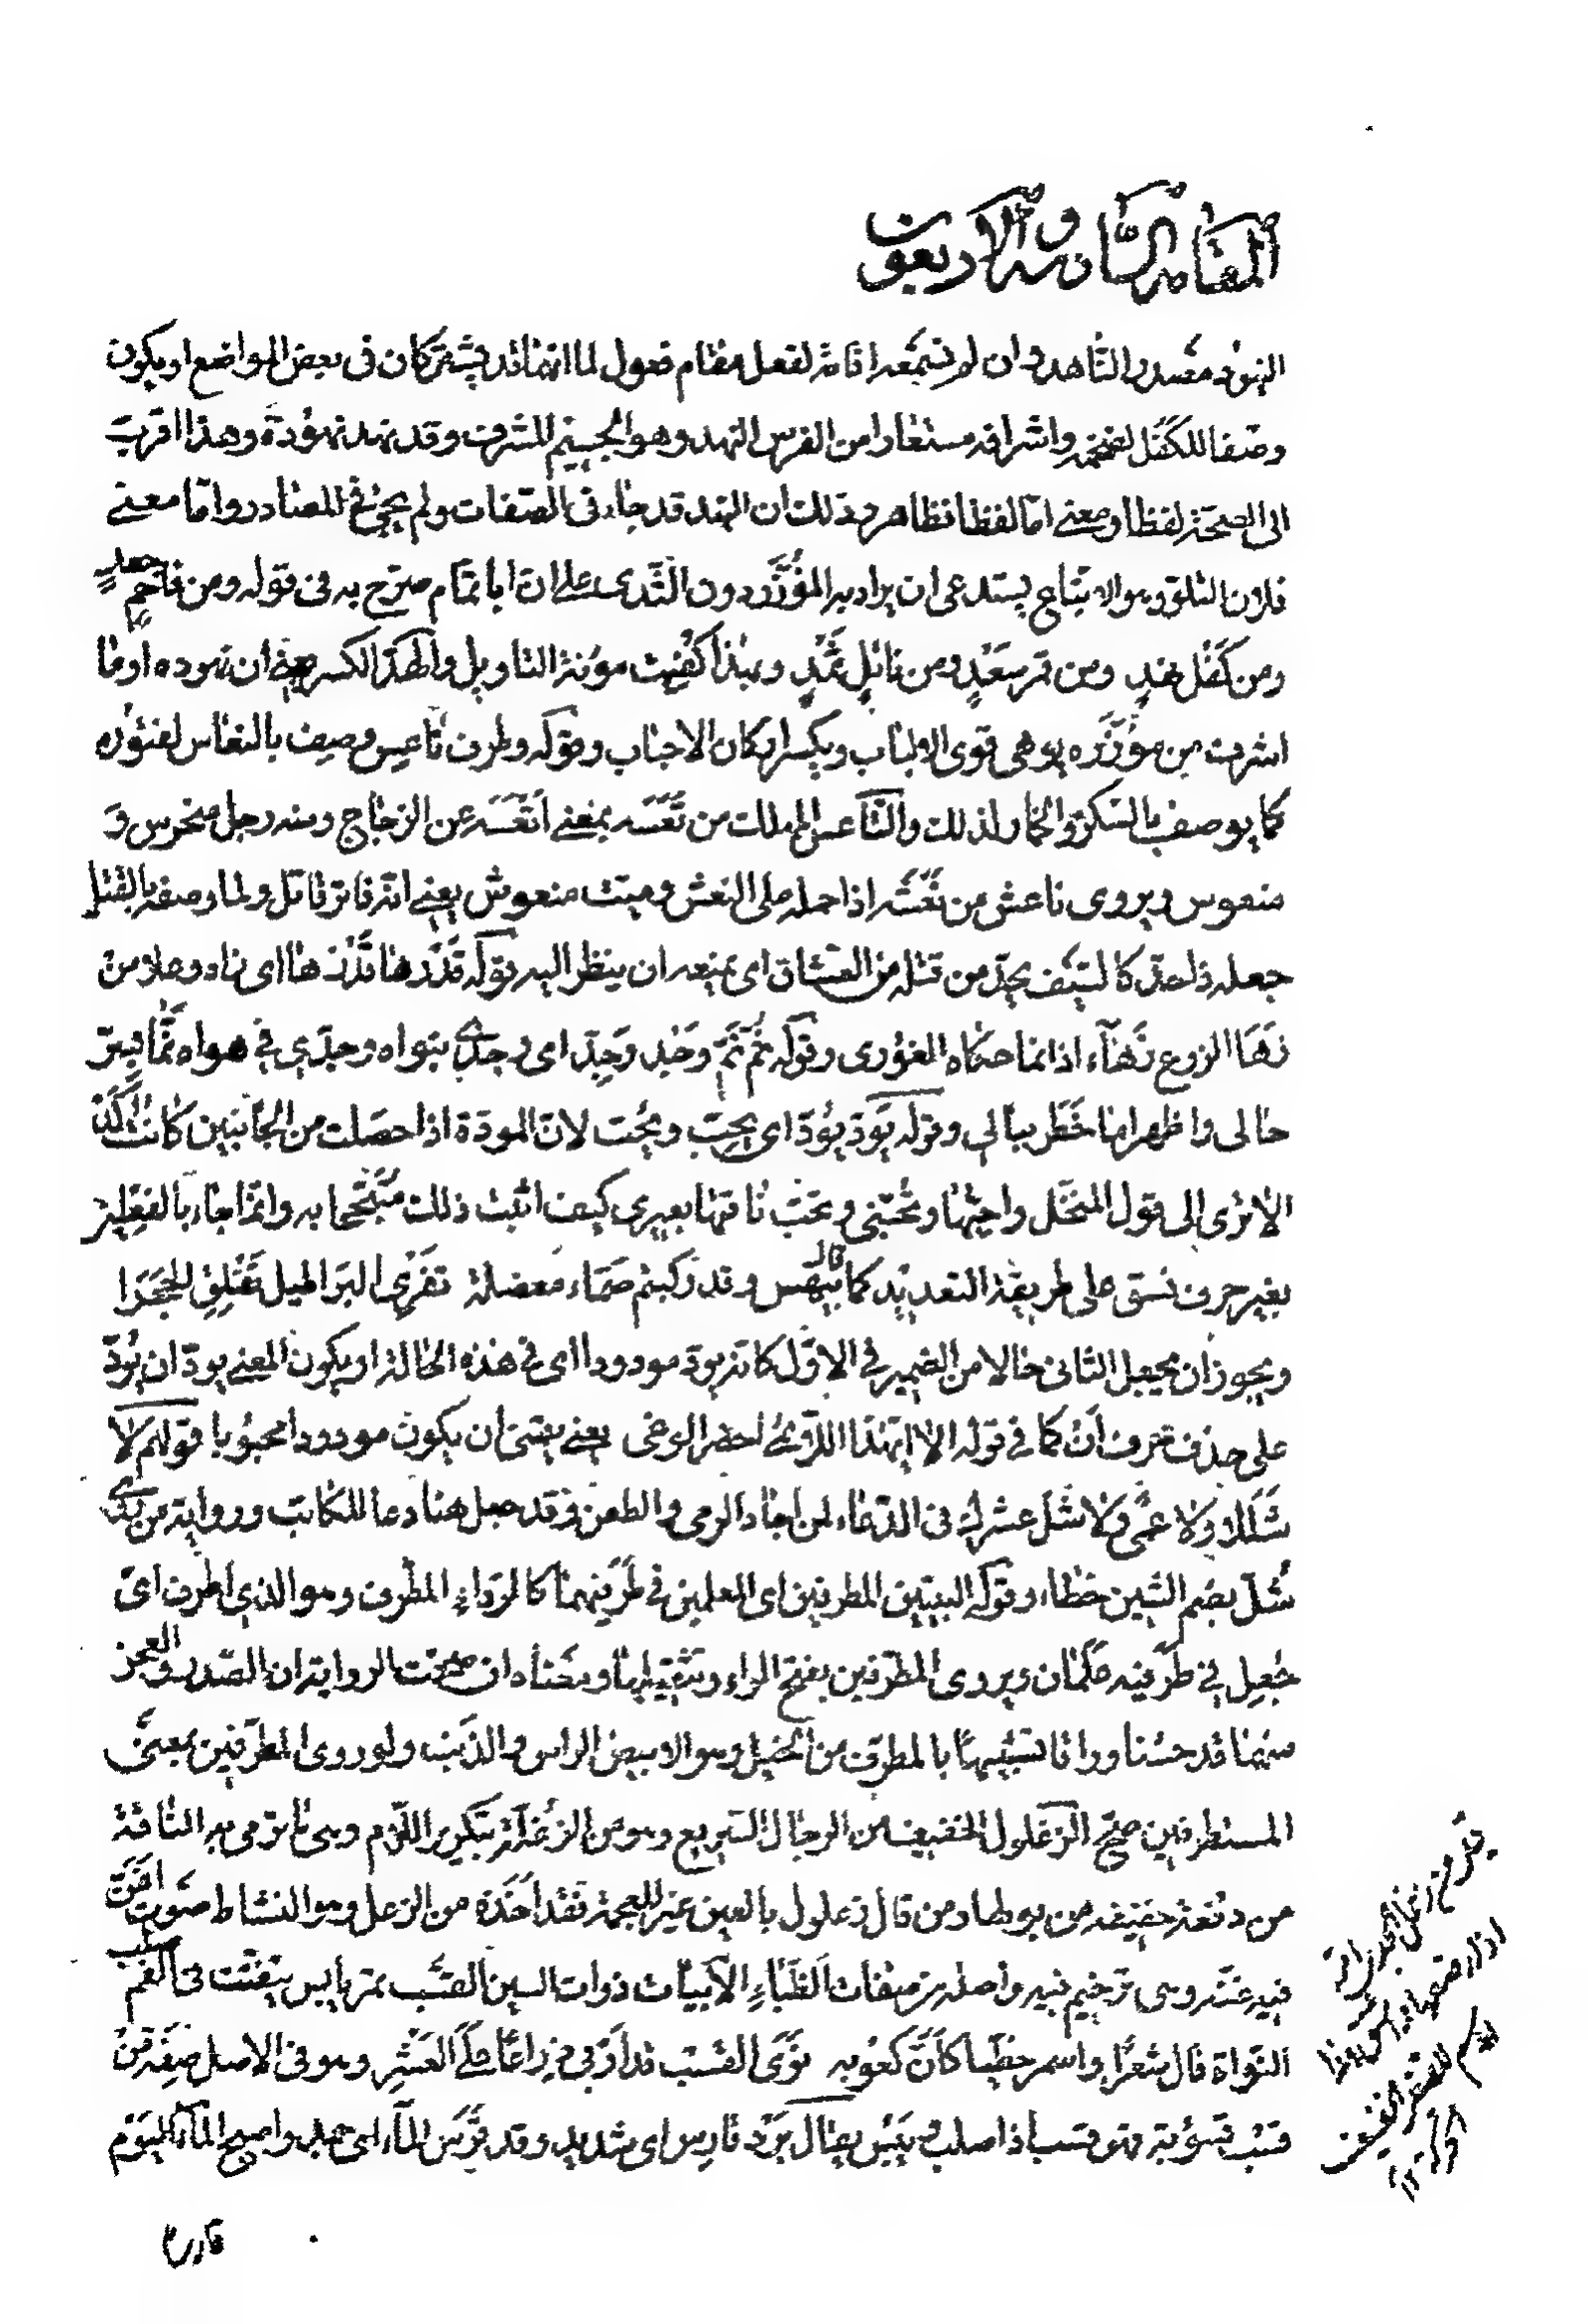 المقامة السادسة والاربعون
النهود مصدر والشاهد وان لم نسمعه اقامة لفعل مقام فعول لما انهما قد يشتركان في بعض المواضع او يكون
وصفا للكفل لضخمه واشرافه مستعارا من الفرس النهد وهو الجسيم المشرف وقد نهد نهودة وهذا اقرب
الى الصحة لفظا ومعنى اما لفظا فظاهر وذلك ان النهد قد جاء في الصفات ولم يجئ في المصادر واما معنى
فلان التلو وهو الاتباع يستدعى ان يراد به المؤزر دون الثدى على ان ابا تمام صرح به في قوله ومن فاحم جعد
ومن كفل نهد ومن قمر سعد ومن نائل ثمد وبهذا كفيت مؤنة التاويل والهد الكسر يعني ان نهوده او ما
اشرف من مؤزره يوهى قوى الالباب ويكسر اركان الاجناب وقوله وطرف ناعس وصف بالنعاس لفتوره
كما يوصف بالسكر والخمار لذلك والتاعس المهلك من تعسه بمعنى اتعسه عن الزجاج ومنه رجل منحوس و
منعوس ويروى ناعش من نعشه اذا حمله على النعش وميت منعوش يعني انه فاتر قاتل ولما وصفه بالقتل
جعله ذا حد كالسيف يحد من قتله من العشاق اى يمنعه ان ينظر اليه قوله قدرها قد زها اى تاه وعلا من
زها الزرع زهاء اذا نما حكاه الغورى وقوله ثم نم وجد وجد اى وجدى بنواه وجدى في هواه نما بسر
حالى واظهرا ما خطر ببالى وقوله يود يود اى يحب ويحب لان المودة اذا حصلت من الجانبين كانت الذ
الا ترى الى قول المنخل واحبها وتحبنى ويحب ناقتها بعيرى كيف اثبت ذلك متبجحا به وانما جاء بالفعلين
بغير حرف نسق على طريقة التعديد كما قال بيهس وقد ركبتم صماء معضلة تفرى البراطيل تفلق الحجرا
ويجوز ان يجعل الثانى حالا من الضمير في الاول كانه يود مودودا اى في هذه الحالة او يكون المعنى يود ان يود
على حذف حرف ان كما في قوله الا ايهذا اللائمى احضر الوغى يعني يتمنى ان يكون مودودا محبوبا قولهم لا
شللا ولا عمى ولا شل عشرك في الدعاء لمن اجاد الرمى والطعن وقد جعل هنا دعا للكاتب ورواية من
شل بضم الشين خطاء وقوله البيتين المطرفين اى المعلمين في طرفيهما كالرداء المطرف وهو الذى اطرف اى
جعل في طرفيه علمان ويروى المطرفين بفتح الراء وتشديدها ومعناه ان صحت الرواية ان الصدر والعجز
منهما قد حسنا وراقا تشبيها بالمطرف من الخيل وهو الابيض الراس والذنب ولو روى المطرفين بمعنى
المستطرفين صح الزغلول الخفيف من الرجال السريع وهو من الزغلة بتكرير اللام وهى ما ترمى به الناقة
من دفعة خفيفة من بولها ومن قال زعلول بالعين غير المعجمة فقد اخذه من الزعل وهو النشاط صوت اغن
فيه غنة وهى ترخيم فيه واصله من صفات الظباء الابيات ذوات السين القسب تمر يابس يتفتت في الفم صلب
النواة قال شعر واسمر خطيا كان كعوبه نوى القسب قد اربى ذراعا على العشر وهو في الاصل صفة من
قسب قسوبة فهو قسب اذا صلب ويبس يقال برد قارس اى شديد وقد قرس الماء اى جمد واصبح الماء اليوم
قارسا